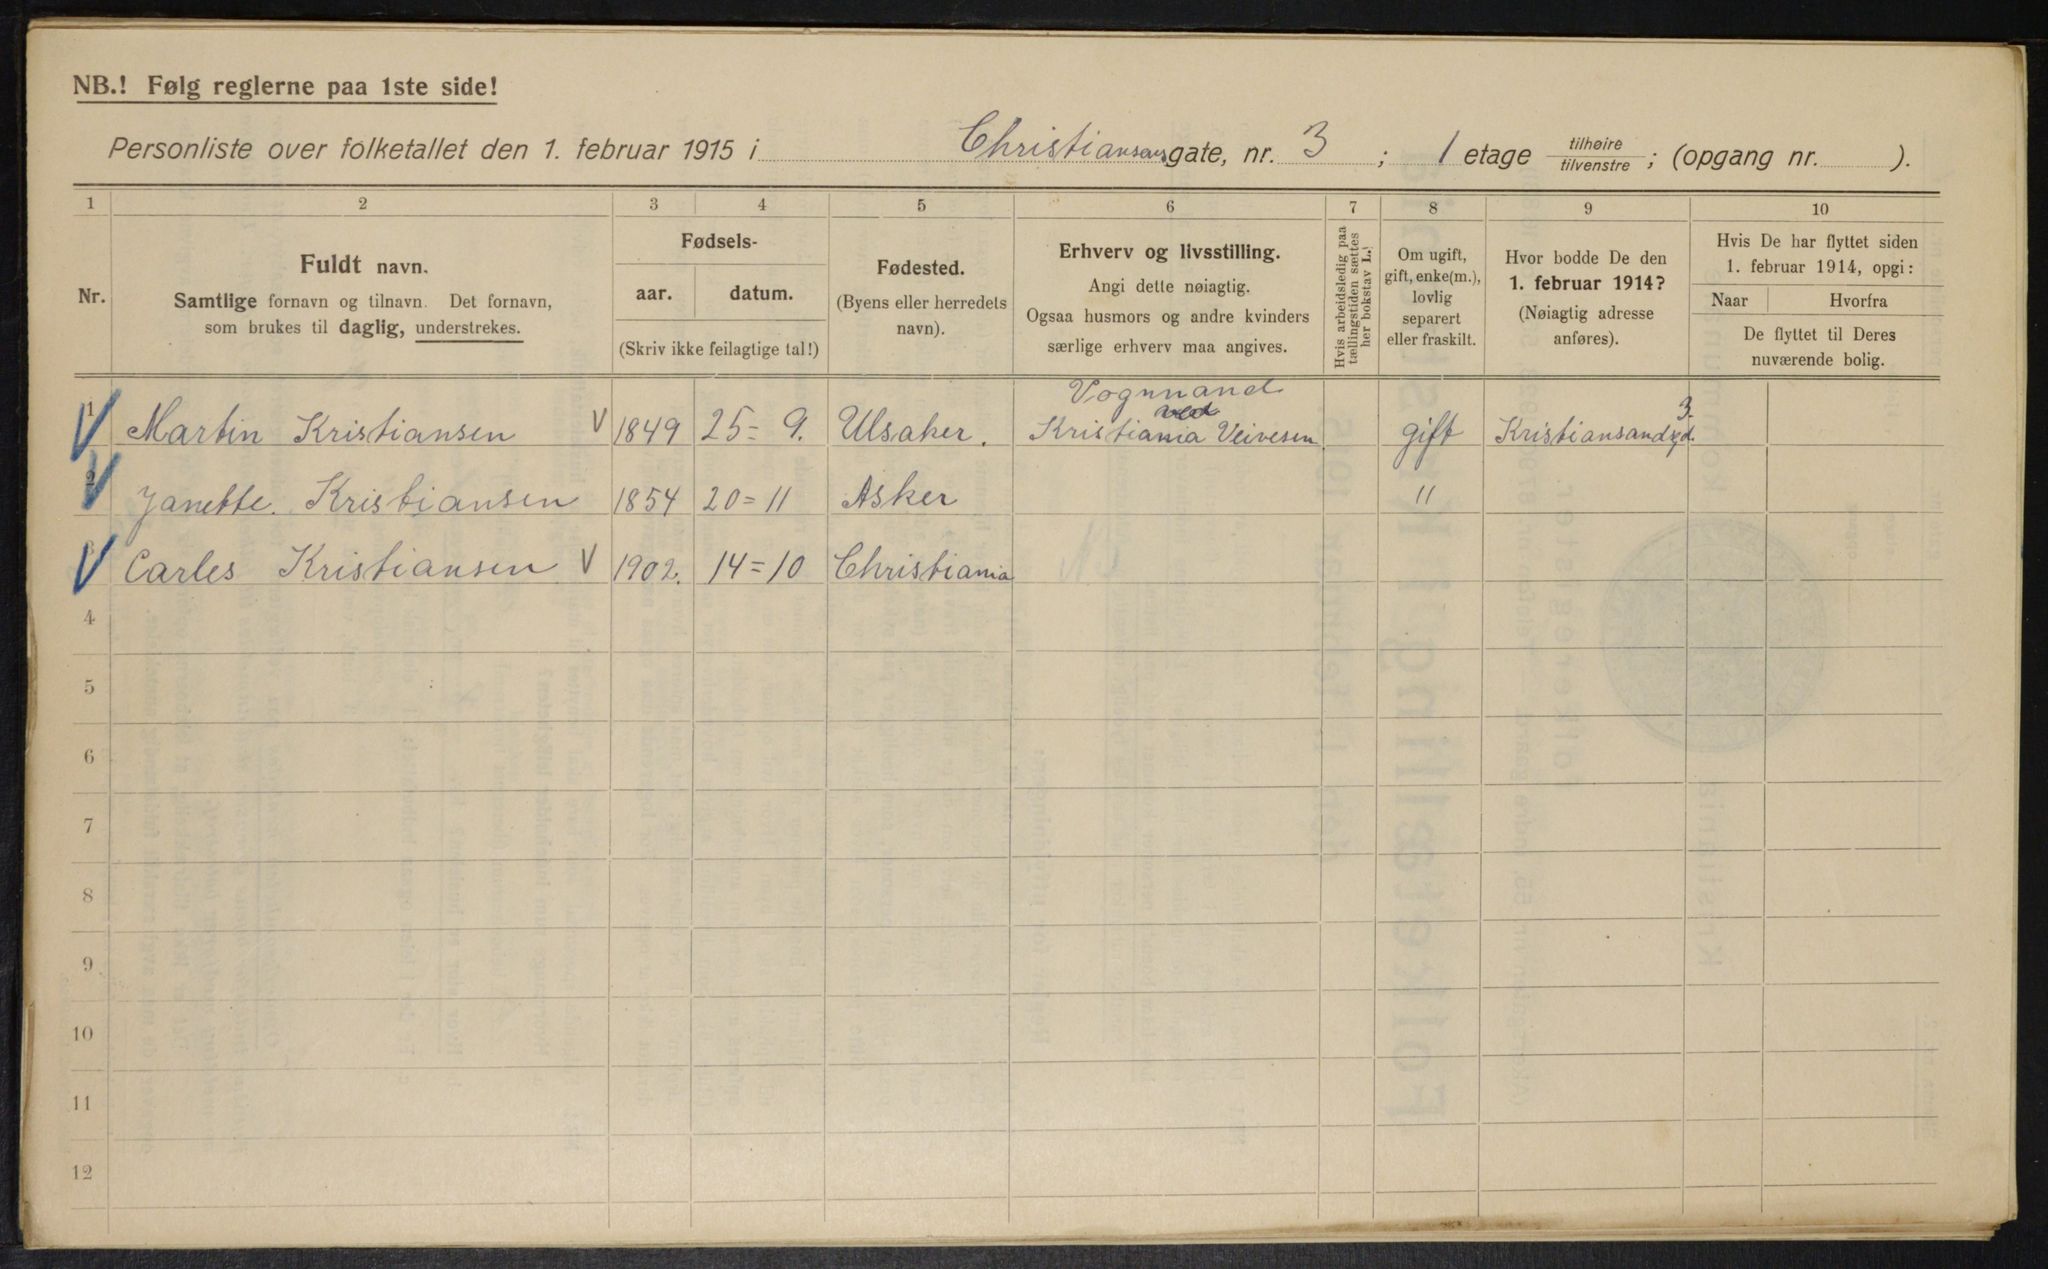 NB.! Følg reglerne paa 1ste side!
Personliste over folketallet den 1. februar 1915 i Christiansans gate, nr. 3 ; 1 etage tilhøire tilvenstre ; (opgang nr. ).
1 2 3 4 5 6 7 8 9 10
Nr.
Fuldt navn.
Samtlige fornavn og tilnavn. Det fornavn,
som brukes til daglig, understrekes.
Fødsels-
aar. datum.
(Skriv ikke feilagtige tal!)
Fødested.
(Byens eller herredets
navn).
Erhverv og livsstilling.
Angi dette nøiagtig.
Ogsaa husmors og andre kvinders
særlige erhverv maa angives.
Hvis arbeidsledig paa
tællingstiden sættes
her bokstav L.!
Om ugift,
gift, enke(m.),
lovlig
separert
eller fraskilt.
Hvor bodde De den
1. februar 1914?
(Nøiagtig adresse
anføres).
Hvis De har flyttet siden
1. februar 1914, opgi:
Naar Hvorfra
De flyttet til Deres
nuværende bolig.
Vognmand
ved
1 Martin Kristiansen V 1849 25=9. Ulsaker. Kristiania Veivesen gift Kristiansandsgd. 3.
2 Janette. Kristiansen 1854 20=11 Asker "
3 Carles Kristiansen V 1902. 14=10 Christiania
4
5
6
7
8
9
10
11
12